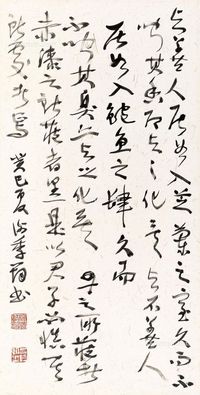 与善人居如入芝兰之室久而不
闻其香即与之化矣与不善人
居如入鲍鱼之肆久而
不闻其臭亦与之化矣丹之所藏者
赤漆之所藏者黑是以君子必慎其
所与处者焉 癸巳夏 季 书